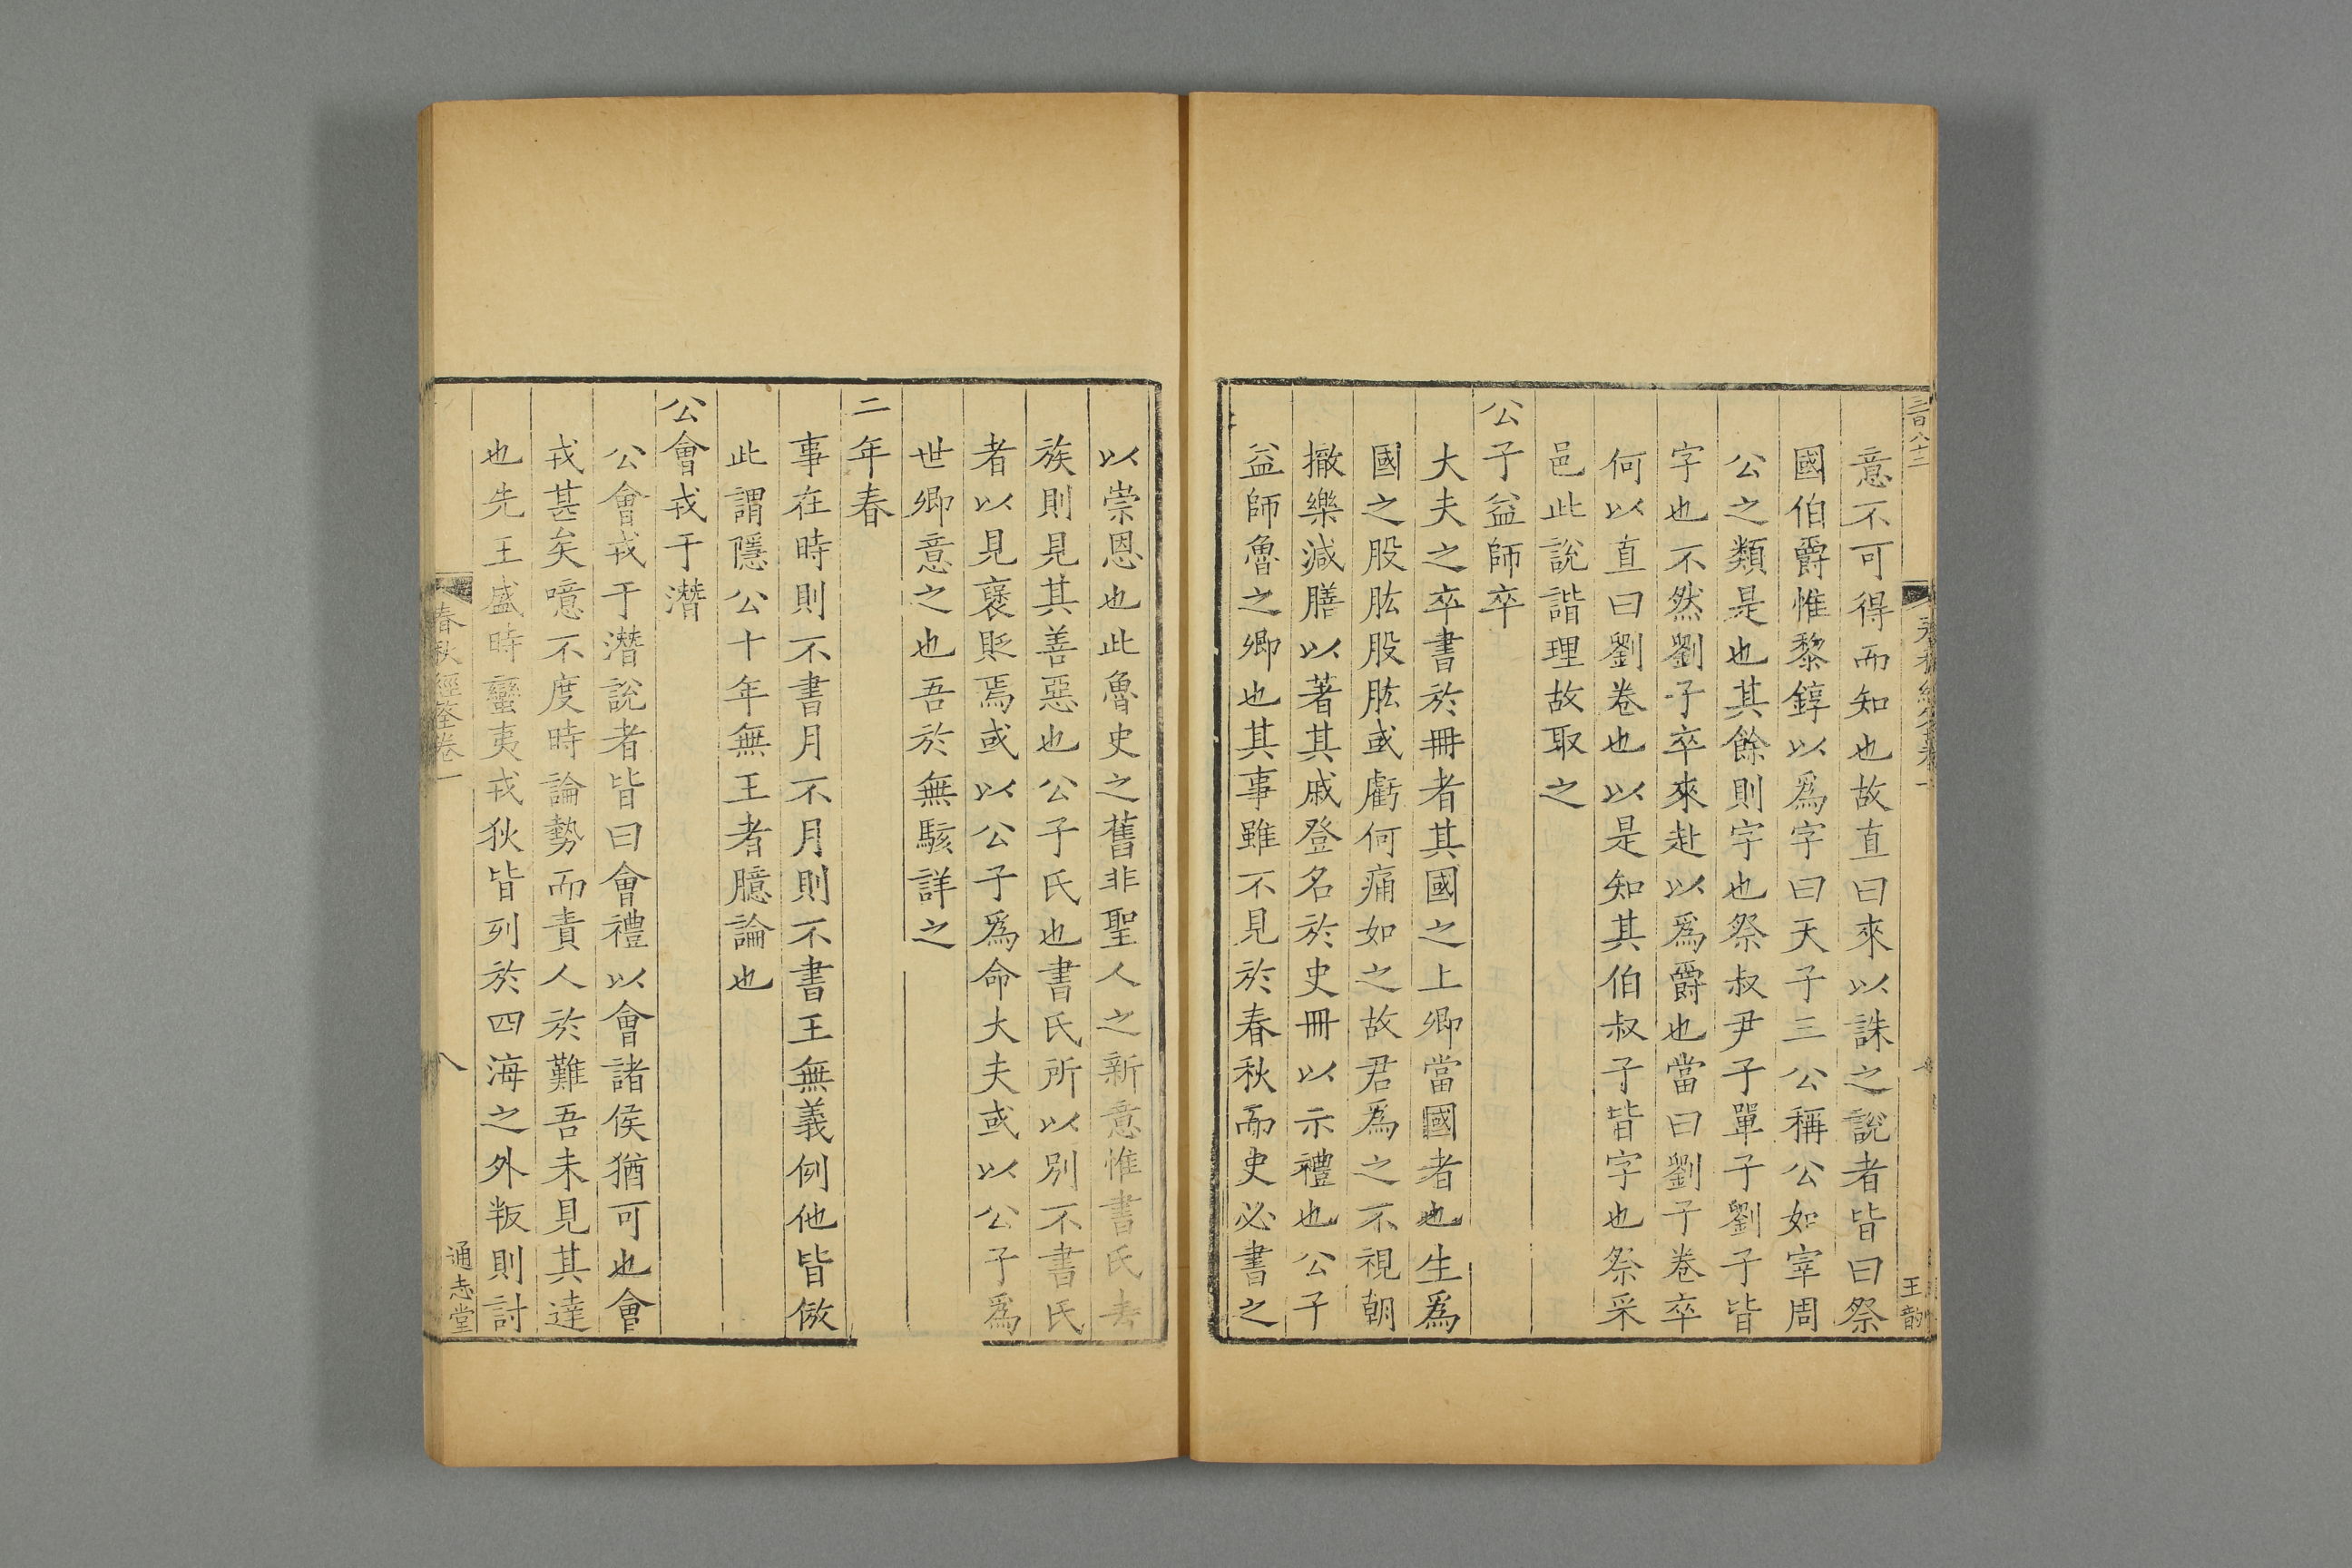 三百八十二
王韵
意不可得而知也故直曰來以誅之說者皆曰祭
國伯爵惟黎錞以爲字曰天子三公稱公如宰周
公之類是也其餘則字也祭叔尹子單子劉子皆
字也不然劉子卒來赴以爲爵也當曰劉子卷卒
何以直曰劉卷也以是知其伯叔子皆字也祭采
邑此說諧理故取之
公子益師卒
大夫之卒書於冊者其國之上卿當國者也生爲
國之股肱股肱或虧何痛如之故君爲之不視朝
撤樂減膳以著其戚登名於史冊以示禮也公子
益師魯之卿也其事雖不見於春秋而史必書之
以崇恩也此魯史之舊非聖人之新意惟書氏去
族則見其善惡也公子氏也書氏所以別不書氏
者以見襃貶焉或以公子爲命大夫或以公子爲
世卿意之也吾於無駭詳之
二年春
事在時則不書月不月則不書王無義例他皆倣
此謂隱公十年無王者臆論也
公會戎于潛
公會戎于潛說者皆曰會禮以會諸侯猶可也會
戎甚矣噫不度時論勢而責人於難吾未見其達
也先王盛時蠻夷戎狄皆列於四海之外叛則討
春秋經筌卷一
八
通志堂